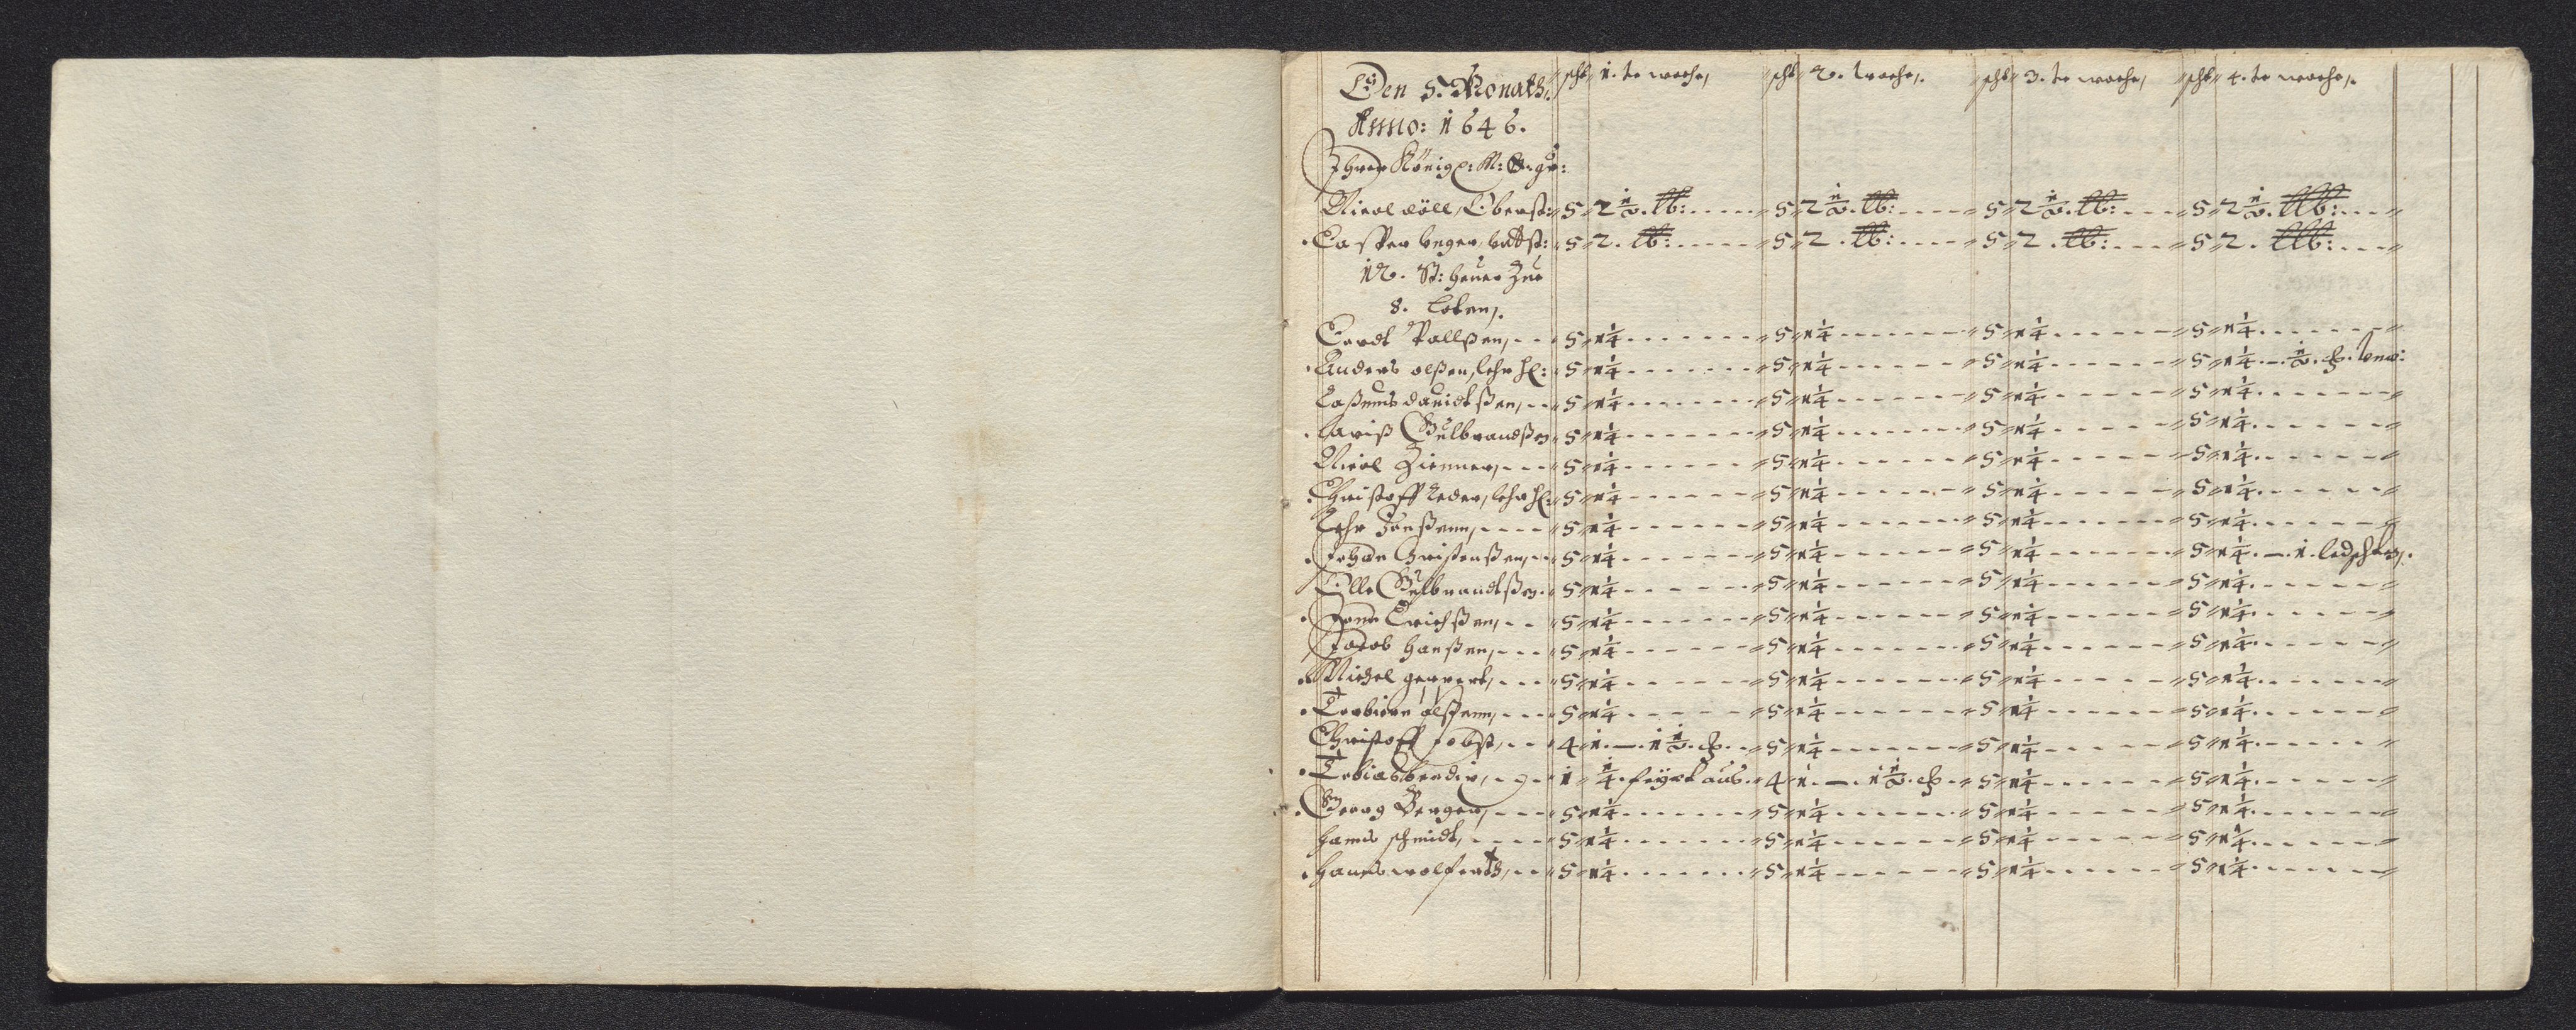 Den 5. Monath. scht 1. te woche, scht 2. woche,. scht 3. te woche, scht 4. te woche,.
Anno: 1646.
Ihrer Königl: M:
Nicol Döll, Oberst: 5 2 1/2. lb: 5 2 1/2. lb: 5 2 1/2. lb: 5 2 1/2. lb:
Casper 5 2. lb: 5 2. lb: 5 2. lb: 5 2. lb:
12. St: heuer Zue
8. Loten,.
Cordt Pallßen, 5 1 1/4 5 1 1/4 5 1 1/4 5 1 1/4
Anders olßen, lehrhl: 5 1 1/4 5 1 1/4 5 1 1/4 5 1 1/4. — 1/2.
Davidtßen, 5 1 1/4 5 1 1/4 5 1 1/4 5 1 1/4
Lariß Gulbrandß 5 1 1/4 5 1 1/4 5 1 1/4 5 1 1/4
Nicol Zienner, 5 1 1/4 5 1 1/4 5 1 1/4 5 1 1/4
Christoff Leder, lehrhl: 5 1 1/4 5 1 1/4 5 1 1/4 5 1 1/4
5 1 1/4 5 1 1/4 5 1 1/4 5 1 1/4
Johan Christenßen, 5 1 1/4 5 1 1/4 5 1 1/4 5 1 1/4. — 1. ledsch
Olle Gulbrandtß 5 1 1/4 5 1 1/4 5 1 1/4 5 1 1/4
Erichßen, 5 1 1/4 5 1 1/4 5 1 1/4 5 1 1/4
Jacob Hanßen, 5 1 1/4 5 1 1/4 5 1 1/4 5 1 1/4
Michel 5 1 1/4 5 1 1/4 5 1 1/4 5 1 1/4
Torbiörn olßenn, 5 1 1/4 5 1 1/4 5 1 1/4 5 1 1/4
Christoff Jobst, 4 1. — 1 1/2. 5 1 1/4 5 1 1/4 5 1 1/4
Tobias bendix, 1 1/4. feyert aus. 4 1. — 1 1/2. 5 1 1/4 5 1 1/4
Georg Berger, 5 1 1/4 5 1 1/4 5 1 1/4 5 1 1/4
Hanns schmidt, 5 1 1/4 5 1 1/4 5 1 1/4 5 1 1/4
Hanns wolferth, 5 1 1/4 5 1 1/4 5 1 1/4 5 1 1/4